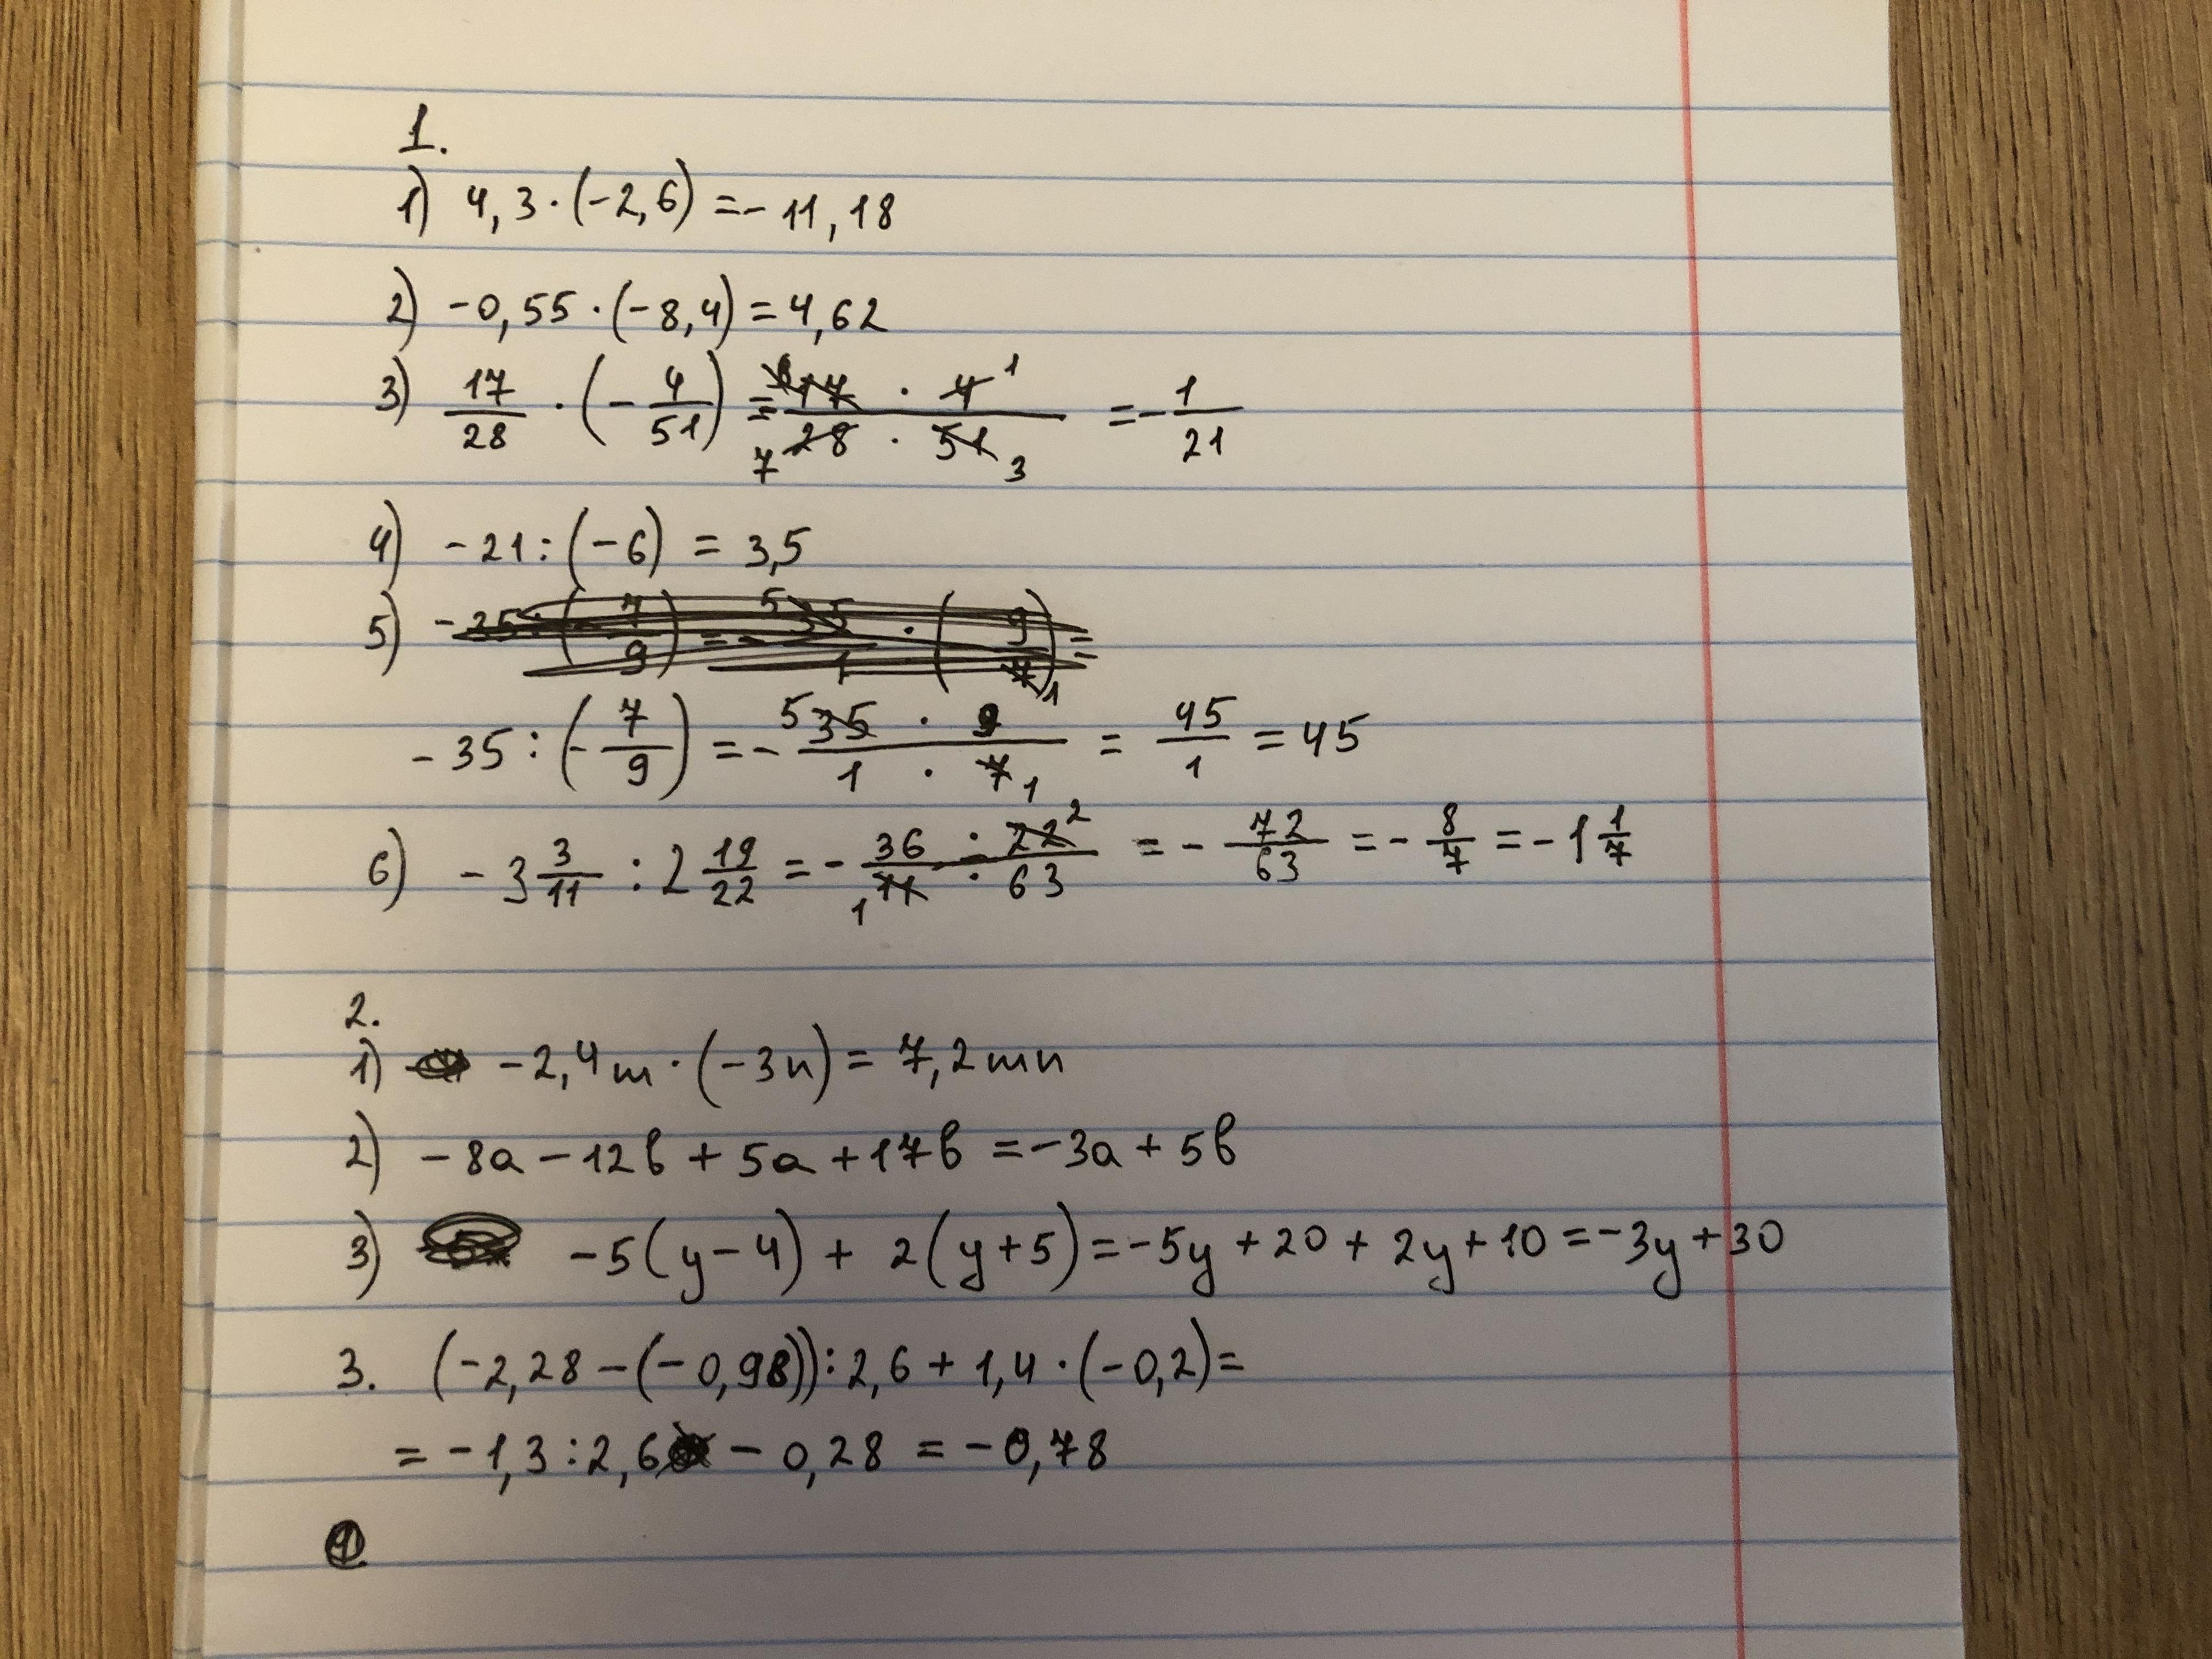 1.
1) 4,3 · (-2,6) = -11,18
2) -0,55 · (-8,4) = 4,62
3) 17/28 · (-4/51) = 17 · 4 1 / 7 28 · 51 3 = -1/21
4) -21 : (-6) = 3,5
5)
-35 : (-7/9) = - 5 35 · 9 / 1 · 7 1 = 45/1 = 45
6) -3 3/11 : 2 19/22 = - 36 · 22 2 / 1 11 · 63 = - 72/63 = - 8/7 = -1 1/7
2.
1) -2,4m · (-3n) = 7,2mn
2) -8a - 12b + 5a + 17b = -3a + 5b
3) -5(y-4) + 2(y+5) = -5y + 20 + 2y + 10 = -3y + 30
3. (-2,28 - (-0,98)) : 2,6 + 1,4 · (-0,2) =
= -1,3 : 2,6 - 0,28 = -0,78